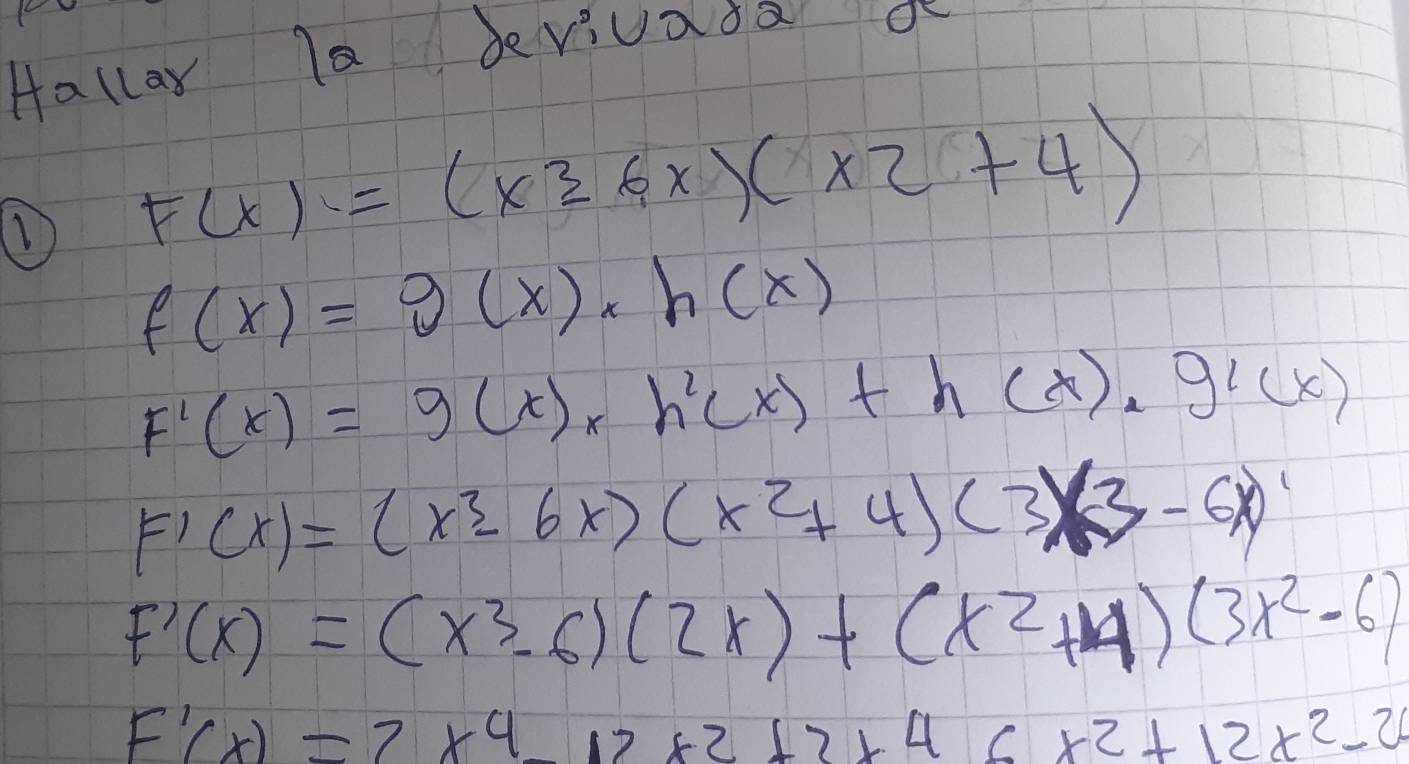 Hallar la derivada de
① F(x) = (x3 - 6x)(x2 + 4)
f(x) = g(x) . h(x)
F'(x) = g(x) . h'(x) + h(x) . g'(x)
F'(x) = (x3 - 6x)(x2 + 4)(3x3 - 6x)'
F'(x) = (x3 - 6)(2x) + (x2 + 4)(3x2 - 6)
F'(x) = 2x4 - 12x2 + 3x4 6x2 + 12x2 - 2